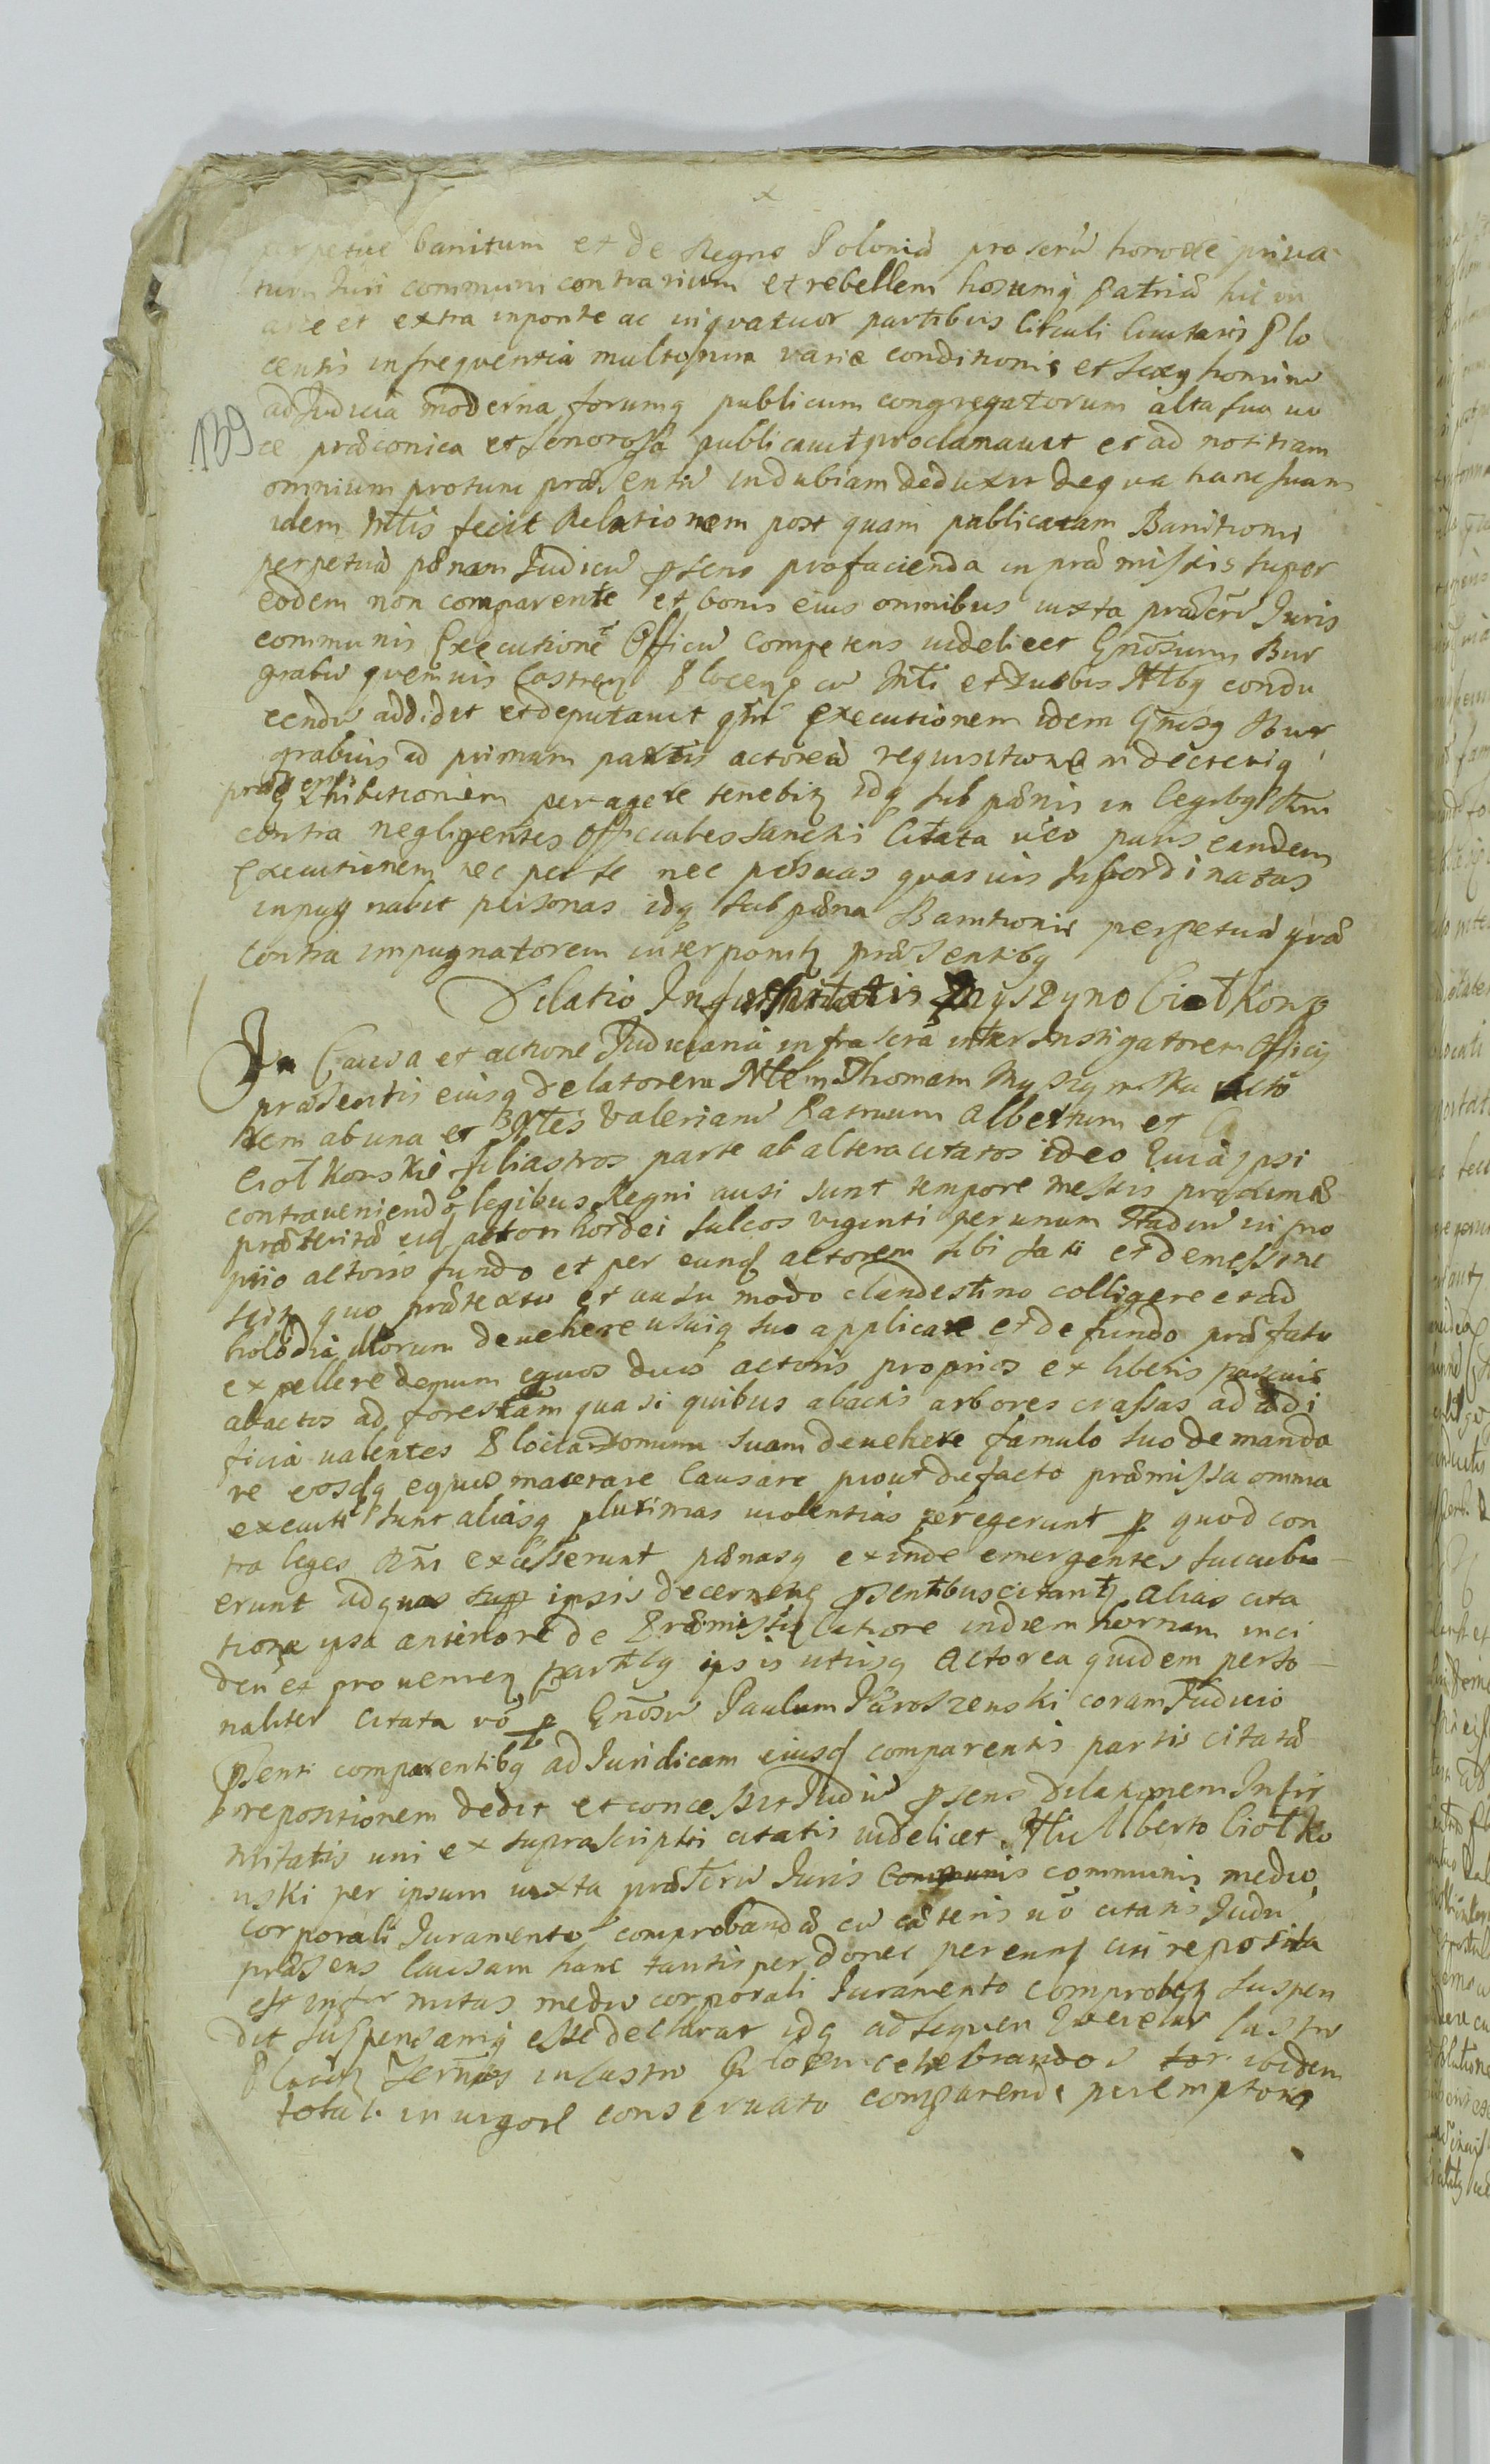 perpetue banitum et de Regno Poloniæ proscrũ honore priva
tum Juri communi contrarium et rebellem hosumq Patriæ hic in
arce et extra in ponte ac in qvatuor partibus Circuli Civitatis Plo
censis in freqventia multorum variæ conditionis et sexq hominũ
ad Judicia moderna forumq publicum congregatorum alta sua vo
139
ce præconica et senorosa publicavit proclamavit et ad notitiam
omnium protunc præsentiũ indubiam deduxit de qva hanc suam
idem Mtlis fecit Relationem post quam publicatam Banitionis
perpetuæ pænam Judiciũ psens pro facienda in præmissis super
eodem non comparente et bonis eius omnibus iuxta præscrũ Juris
communis Executionẽ Officiũ competens videlicet Gnosum Bur
grabiũ qvemvis Castren Plocen cũ Mtli et duobus Ntlbq condu
cendũ addidit et deputavit qm executionem idem Gnosq Bur
grabius ad primam partis actoreæ requisitionem decretiq
præsentis
exhibitionem peragere tenebit idq sub pænis in legibq Rni
contra negligentes Officiales sancitis Citata vero pars eandem
Executionem nec per se nec per suas quasvis subordinatas
inpugnabit personas idq sub pæna Banitionis perpetuæ qvæ
contra impugnatorem interponit præsentibq
Dilatio Infirmitatis Myszyno Ciołkowo
In Causa et actione Judiciaria infrascra inter Instigatorem Officij
præsentis eiusq delatorem Ntlem Thomam Myszynski acto
rem ab una et Ntles Valerianũ Patruum Albertum et
Ciołkowskie filiastros parte ab altera citatos ideo Quia ipsi
contraveniendo legibus Regni ausi sunt tempore messis proximæ
præteritæ eiq actori hordei sulcos viginti per unum stadiũ in pro
prio actoris fundo et per eunq actorem sibi sati et demessi ne
scit quo prætextu et ausu modo clandestino colligere et ad
holodia illorum devehere usuiq suo applicare et de fundo præfatũ
expellere demum equos duos actoris proprios ex liberis pascuis
abactos ad forestam quasi quibus abactis arbores crassas ad ædi
ficia valentes Plociam domum suam devehere famulo suo demanda
re eosdq equos macerare Causare prout de facto præmissa omnia
executi sunt aliasq plurimas violentias peregerunt p quod con
tra leges Rni excesserunt pænasq exinde emergentes succubu
erunt ad quas sup ipsis decernen psentibus citant alias cita
tione ipsa anteriore de Præmissis latiore in diem hernam inci
den et provenien partibq ipsis utrisq Actorea quidem perso
naliter citata vo p Gnosũ Paulum Jaroszewski coram Judicio
psenti comparentibq ad Juridicam eiusq comparentis partis citatæ
repositionem dedit et concessit Judiũ psens dilationem Infir
mitatis uni ex suprascriptis citatis videlicet Ntli Alberto Ciołko
wski per ipsum iuxta præscrũ Juris Communis communis medio
corporali Juramento comprobandæ cũ cæteris vo citatis Judiũ
præsens Causam hanc tantisper donec per eunq cui reposita
est infirmitas medio corporali Juramento comprobet suspen
dit suspensamq esse declarat idq ad sequen Querelar Castrũ
Plocen Termios in Castro Plocen celebrandos tor ibidem
total in vigore conservato comparendi peremptorie